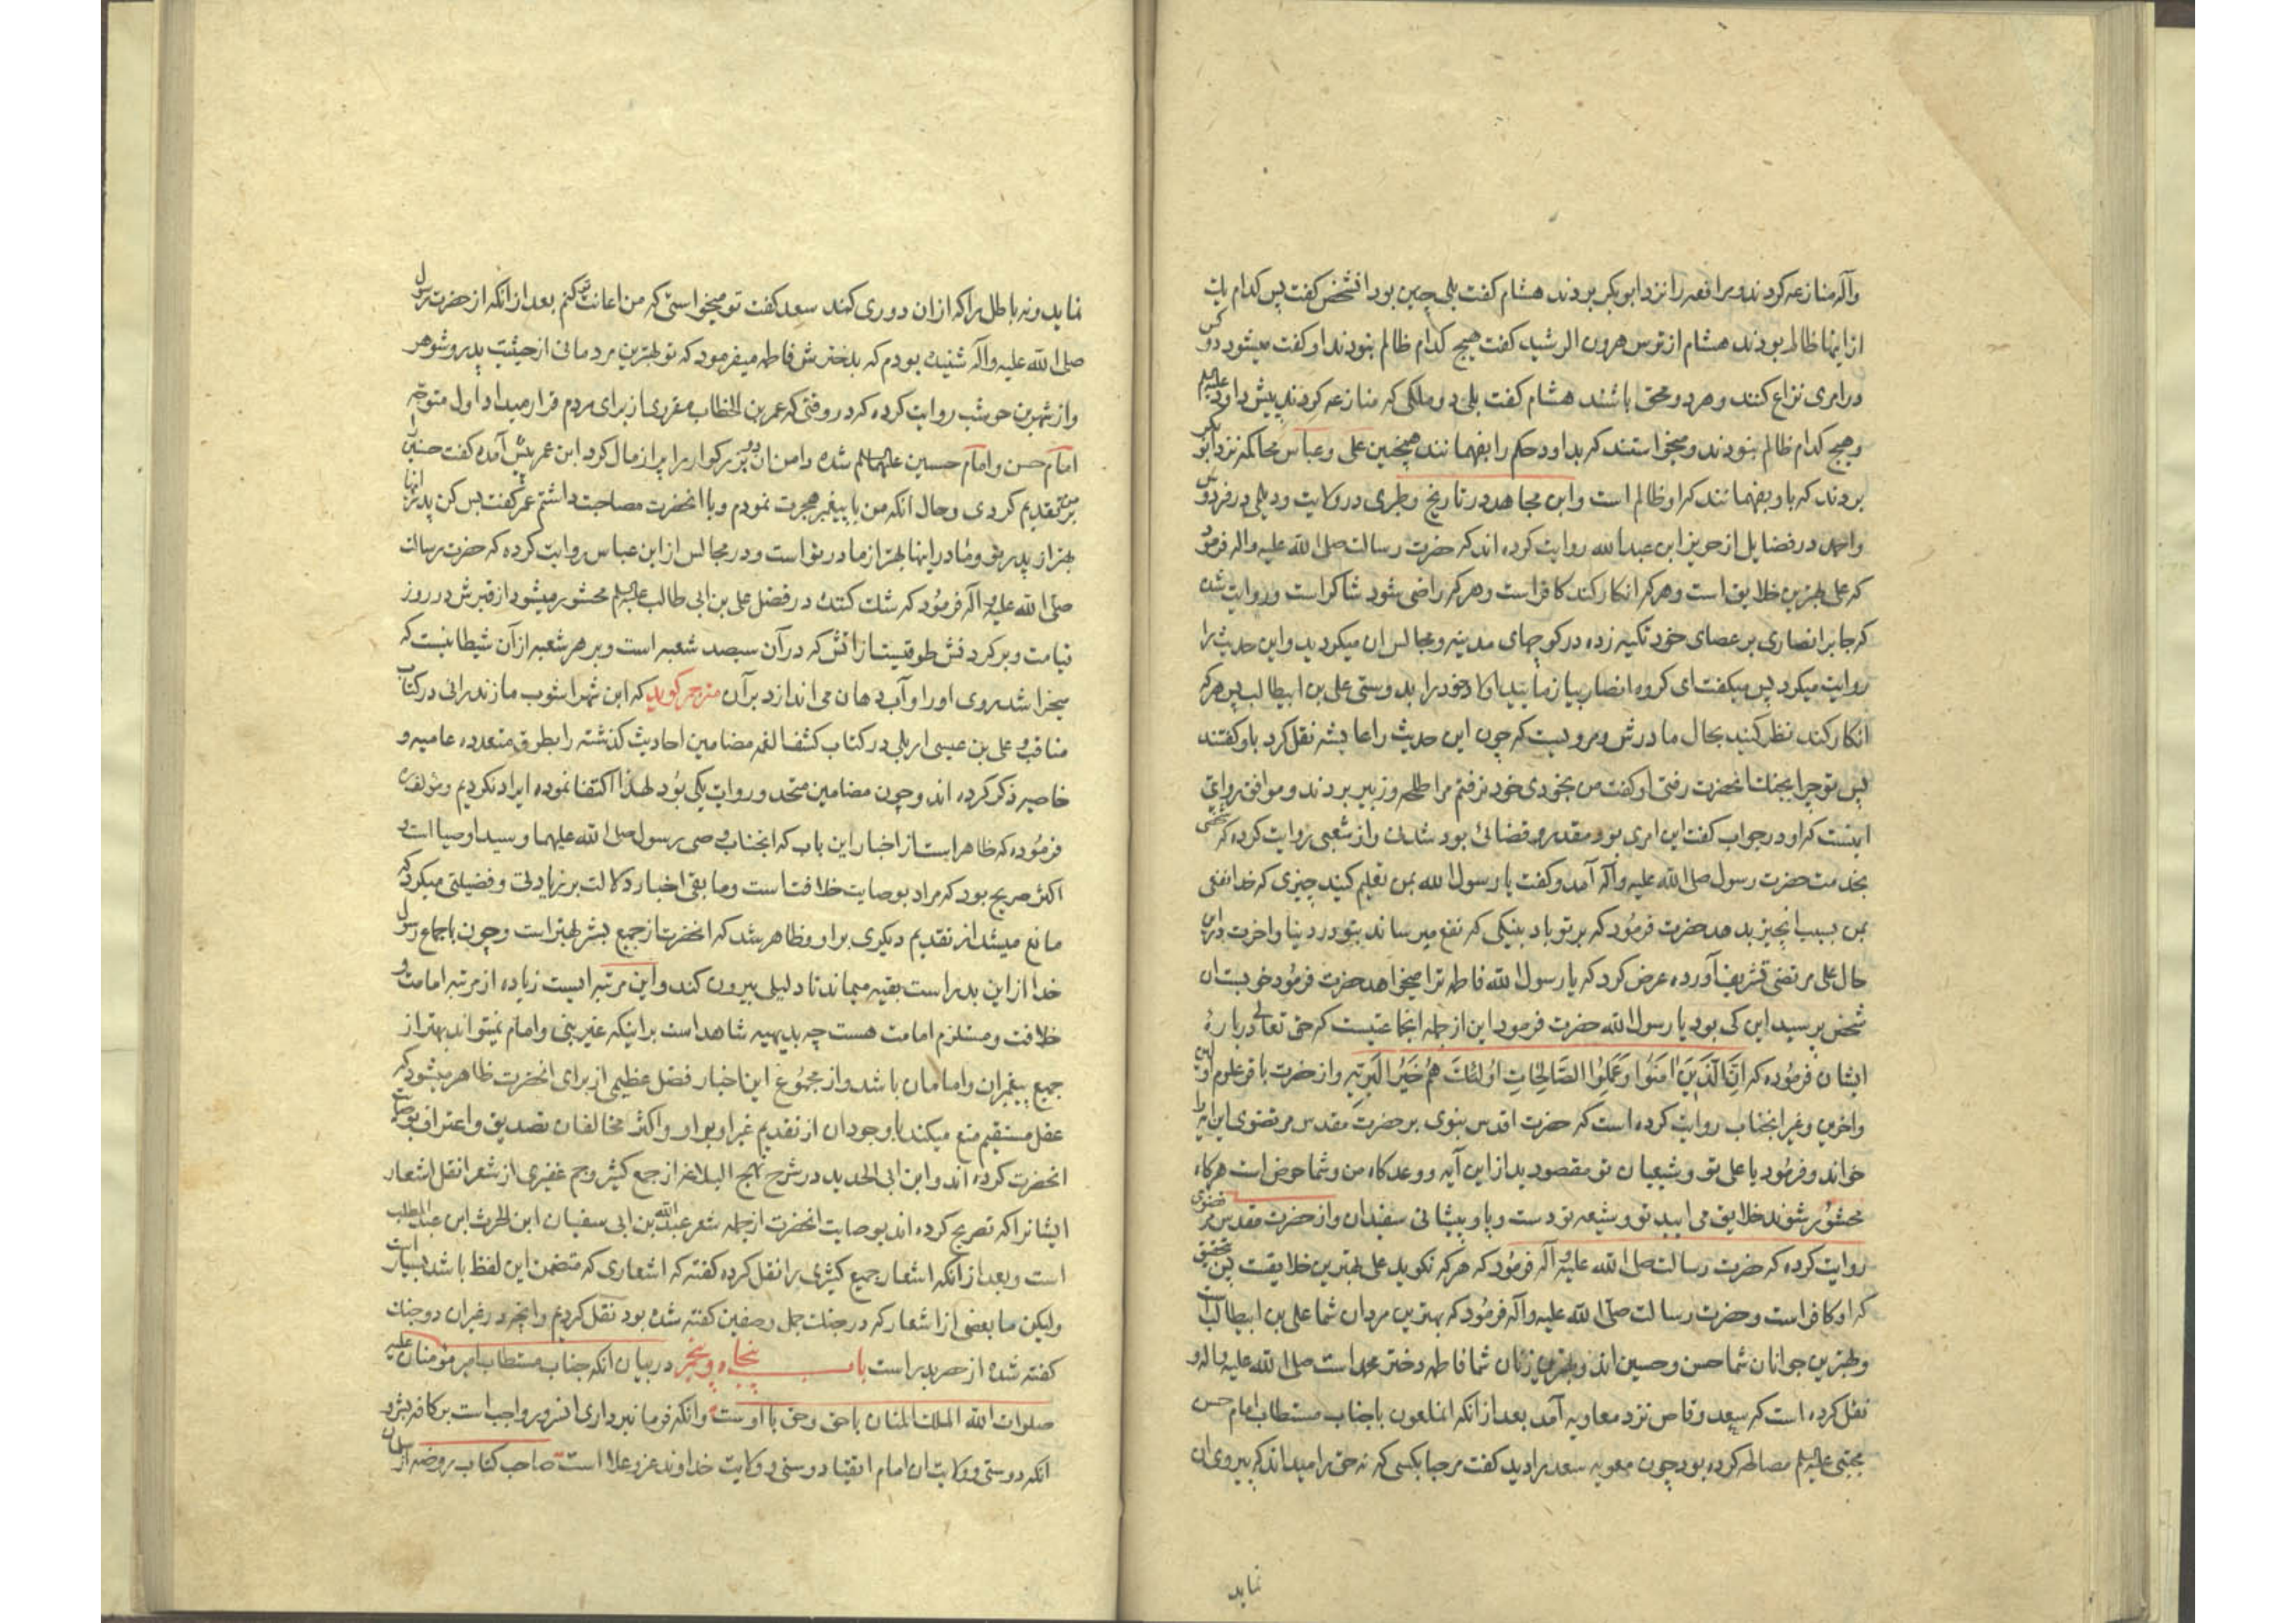 وآله منازعه کردند و مرافعه را نزد ابوبکر بردند هشام گفت بلی چنین بود انشخص گفت پس کدام یک
ازاینها ظالم بودند هشام از ترس هرون الرشید گفت هیچ کدام ظالم نبودند او گفت میشود دو کس
در امری نزاع کنند و هر دو محق باشند هشام گفت بلی دو ملکی که منازعه کردند پیش داود علیه السلم
و هیچ کدام ظالم نبودند و میخواستند که بداود حکم را بفهمانند همچنین علی و عباس محاکمه نزد ابو بکر
بردند که باو بفهمانند که او ظالم است و ابن مجاهد در تاریخ و طبری در ولایت و دیلمی در فردوس
و احمد در فضایل از ابن عبدالله روایت کرده اند که حضرت رسالت صلی الله علیه واله فرمود
که علی بهترین خلایق است و هر که انکار کند کافر است و هر که راضی شود شاکر است و روایت شده
که جابر انصاری بر عصای خود تکیه زده در کوچهای مدینه و مجالس ان میکردید و این حدیث را
روایت میکرد پس میکفت ای کروه انصار بیازمایید اولاد خود را بدوستی علی بن ابیطالب پس هر که
انکار کند نظر کنید بحال مادرش و مرویست که چون این حدیث را عایشه نقل کرد باو کفتند
پس تو چرا بجنک انحضرت رفتی او کفت من بخودی خود نرفتم مرا طلحه و زبیر بردند و موافق روایتی
اینست که او در جواب کفت این امری بود مقدر و قضائی بود شدنی و از شعبی روایت کرده که شخصی
بخدمت حضرت رسول صلی الله علیه وآله آمد و کفت یا رسول الله بمن تعلیم کنید چیزی که خدا نفعی
بمن بسبب انچیز بدهد حضرت فرمود که بر تو باد بنیکی که نفع میرساند بتو در دنیا و اخرت در این
حال علی مرتضی تشریف آورده عرض کرد که یا رسول الله فاطمه ترا میخواهد حضرت فرمود خوبست ان
شخص پرسید این کی بود یا رسول الله حضرت فرمود این از جمله انجماعتیست که حق تعالی در بارهٔ
ایشان فرموده که اِنَّ الَّذینَ اٰمَنُوا وَعَمِلُوا الصّالِحاتِ اُولٰئِکَ هُم خَیرُ البَرِیَّه و از حضرت باقر علوم اولین
و اخرین و غیر انجناب روایت کرده است که حضرت اقدس نبوی بر حضرت مقدس مرتضوی این ایه را
خواند و فرمود یا علی تو و شیعیان تو مقصودید از این آیه و وعدکاه من و شما حوض است هرکاه
محشور شوند خلایق می ایید تو و شیعه تو دست و پا و پیشانی سفیدان و از حضرت مقدس مرتضوی
روایت کرده که حضرت رسالت صلی الله علیه و آله فرمود که هر که نکوید علی بهترین خلایقست پس بتحقیق
که او کافر است و حضرت رسالت صلی الله علیه وآله فرمود که بهترین مردان شما علی بن ابیطالب است
و بهترین جوانان شما حسن و حسین اند و بهترین زنان شما فاطمه دختر محمد است صلی الله علیه و اله و
نقل کرده است که سعد وقاص نزد معاویه آمد بعد از انکه انملعون با جناب مستطاب امام حسن
مجتبی علیه السلم مصالحه کرده بود چون معویه سعد را دید کفت مرحبا بکسی که نه حق را میداند که پیروی ان
نماید
نماید و نه باطل را که از ان دوری کند سعد کفت تو میخواستی که من اعانت تو کنم بعد از انکه از حضرت رسول
صلی الله علیه واله شنیده بودم که بدخترش فاطمه میفرمود که تو بهترین مردمانی از حیثیت پدر و شوهر
و از شهر بن حوشب روایت کرده که در وقتی که عمر بن الخطاب مقرری از برای مردم قرار میداد اول متوجه
امام حسن و امام حسین علیهما السلم شده دامن ان دو بزرکوار را پر از مال کرد ابن عمر پیش آمده کفت حسنین را
بر من تقدیم کردی و حال انکه من با پیغمبر هجرت نمودم و با انحضرت مصاحبت داشتم عمر کفت بس کن پدر انها
بهتر از پدر تو و مادر اینها بهتر از مادر تو است و در مجالس از ابن عباس روایت کرده که حضرت رسالت
صلی الله علیه و آله فرمود که شک کننده در فضل علی بن ابی طالب علیه السلم محشور میشود از قبرش در روز
قیامت و بر کردنش طوقیست از اتش که در آن سیصد شعبه است و بر هر شعبه از آن شیطانیست که
میخراشد روی او را و آب دهان می اندازد بر آن مترجم کوید که ابن شهراشوب مازندرانی در کتاب
مناقب و علی بن عیسی اربلی در کتاب کشف الغمه مضامین احادیث کذشته را بطرق متعدده عامیه و
خاصیه ذکر کرده اند و چون مضامین متحد و روایت یکی بود لهذا اکتفا نموده ایراد نکردیم و مؤلف ره
فرموده که ظاهر است از اخبار این باب که انجناب وصی رسول صلی الله علیهما و سید اوصیا است و
اکثر صریح بود که مراد بوصایت خلافت است و ما بقی اخبار دلالت بر زیادتی و فضیلتی میکرد که
مانع میشد از تقدیم دیکری بر او و ظاهر شد که انحضرت از جمیع بشر بهتر است و چون باجماع رسول
خدا از این بدر است بقیه میماند تا دلیلی بیرون کند و این مرتبه ایست زیاده از مرتبه امامت و
خلافت و مستلزم امامت هست چه بدیهیه شاهد است بر اینکه غیر نبی و امام نمیتواند بهتر از
جمیع پیغمبران و امامان باشد و از مجموع این اخبار فضل عظیمی از برای انحضرت ظاهر میشود که
عقل مستقیم منع میکند با وجود ان از تقدیم غیر او بر او و اکثر مخالفان تصدیق و اعتراف بوصایت
انحضرت کرده اند و ابن ابی الحدید در شرح نهج البلاغه از جمع کثیر و جم غفیری از شعرا نقل اشعار
ایشانرا که تصریح کرده اند بوصایت انحضرت از جمله شعر عبد الله بن ابی سفیان ابن الحرث ابن عبد المطلب
است و بعد از انکه اشعار جمیع کثیری را نقل کرده کفته که اشعاری که متضمن این لفظ باشد بسیار است
ولیکن ما بعضی از اشعار که در جنک جمل و صفین کفته شده بود نقل کردیم و انچه در غیر ان دو جنک
کفته شده از حصر بدر است باب پنجاه و پنجم در بیان انکه جناب مستطاب امیر مؤمنان علیه
صلوات الله الملک المنان با حق و حق با اوست و انکه فرمانبرداری انسرور واجب است بر کافه بشر و
انکه دوستی و ولایت ان امام اتقیا دوستی و ولایت خداوند عز و علا است صاحب کتاب روضه از سلمان